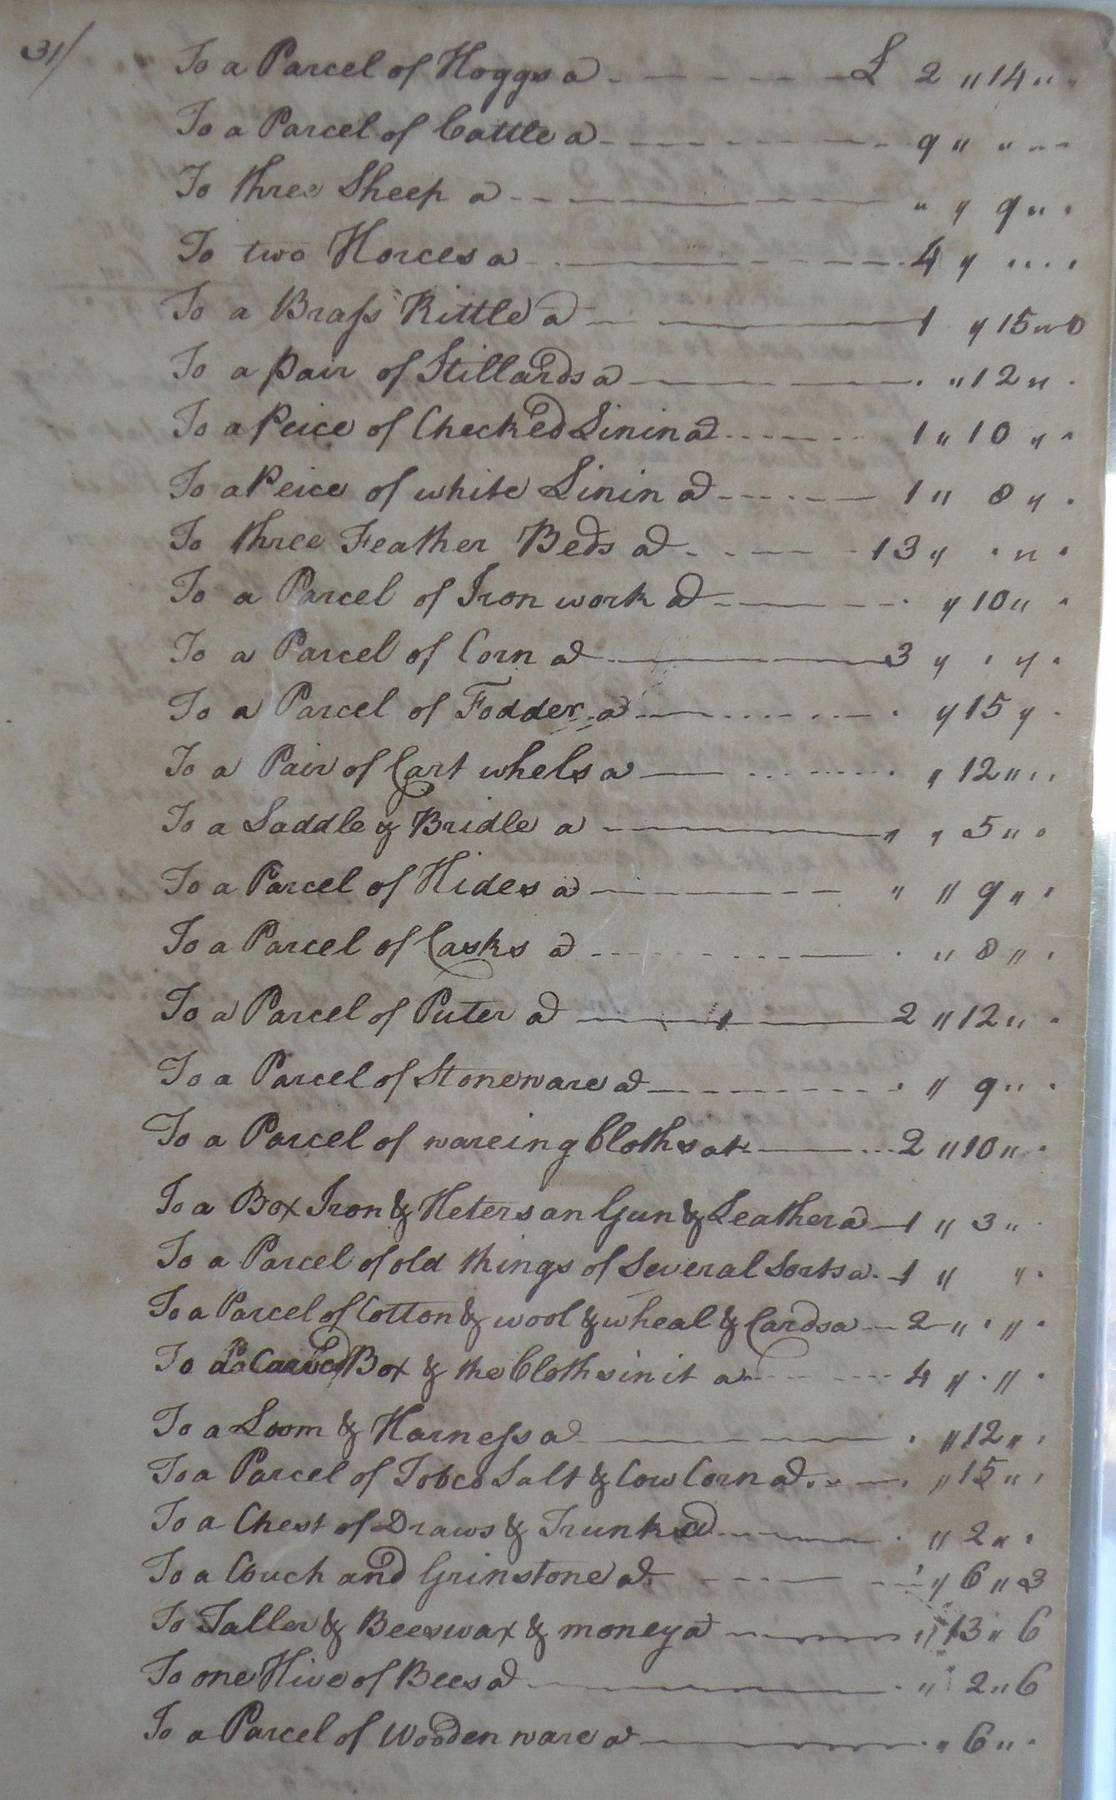 31/
To a Parcel of Hoggs a £ 2 " 14 "
To a Parcel of Cattle a 9 " " "
To three Sheep a " " 9 "
To two Horces a 4 "
To a Brass Kittle a 1 " 15 " 0
To a pair of Stillards a " 12 "
To a Peice of Checked Linin a 1 " 10 "
To a Peice of white Linin a 1 " 8 "
To three Feather Beds a 13 " "
To a Parcel of Iron work a " 10 "
To a Parcel of Corn a 3 " "
To a Parcel of Fodder a " 15 "
To a Pair of Cart whels a " 12 "
To a Saddle & Bridle a " " 5 "
To a Parcel of Hides a " " 9 "
To a Parcel of Casks a " 8 "
To a Parcel of Puter a 2 " 12 "
To a Parcel of Stoneware a " 9 "
To a Parcel of wareing Cloths at 2 " 10 "
To a Box Iron & Heters an Gun & Leather a 1 " 3 "
To a Parcel of old things of Several Sorts a 1 " "
To a Parcel of Cotton & wool & wheal & Cards a 2 " "
To a Carved Box & the Cloths in it a 4 " "
To a Loom & Harness a " 12 "
To a Parcel of Tobco Salt & Cow Corn a " 15 "
To a Chest of Draws & Trunk a " 2 "
To a Couch and Grinstone a " 6 " 3
To Taller & Beeswax & money a " 13 " 6
To one Hive of Bees a " 2 " 6
To a Parcel of Wooden ware a " 6 "